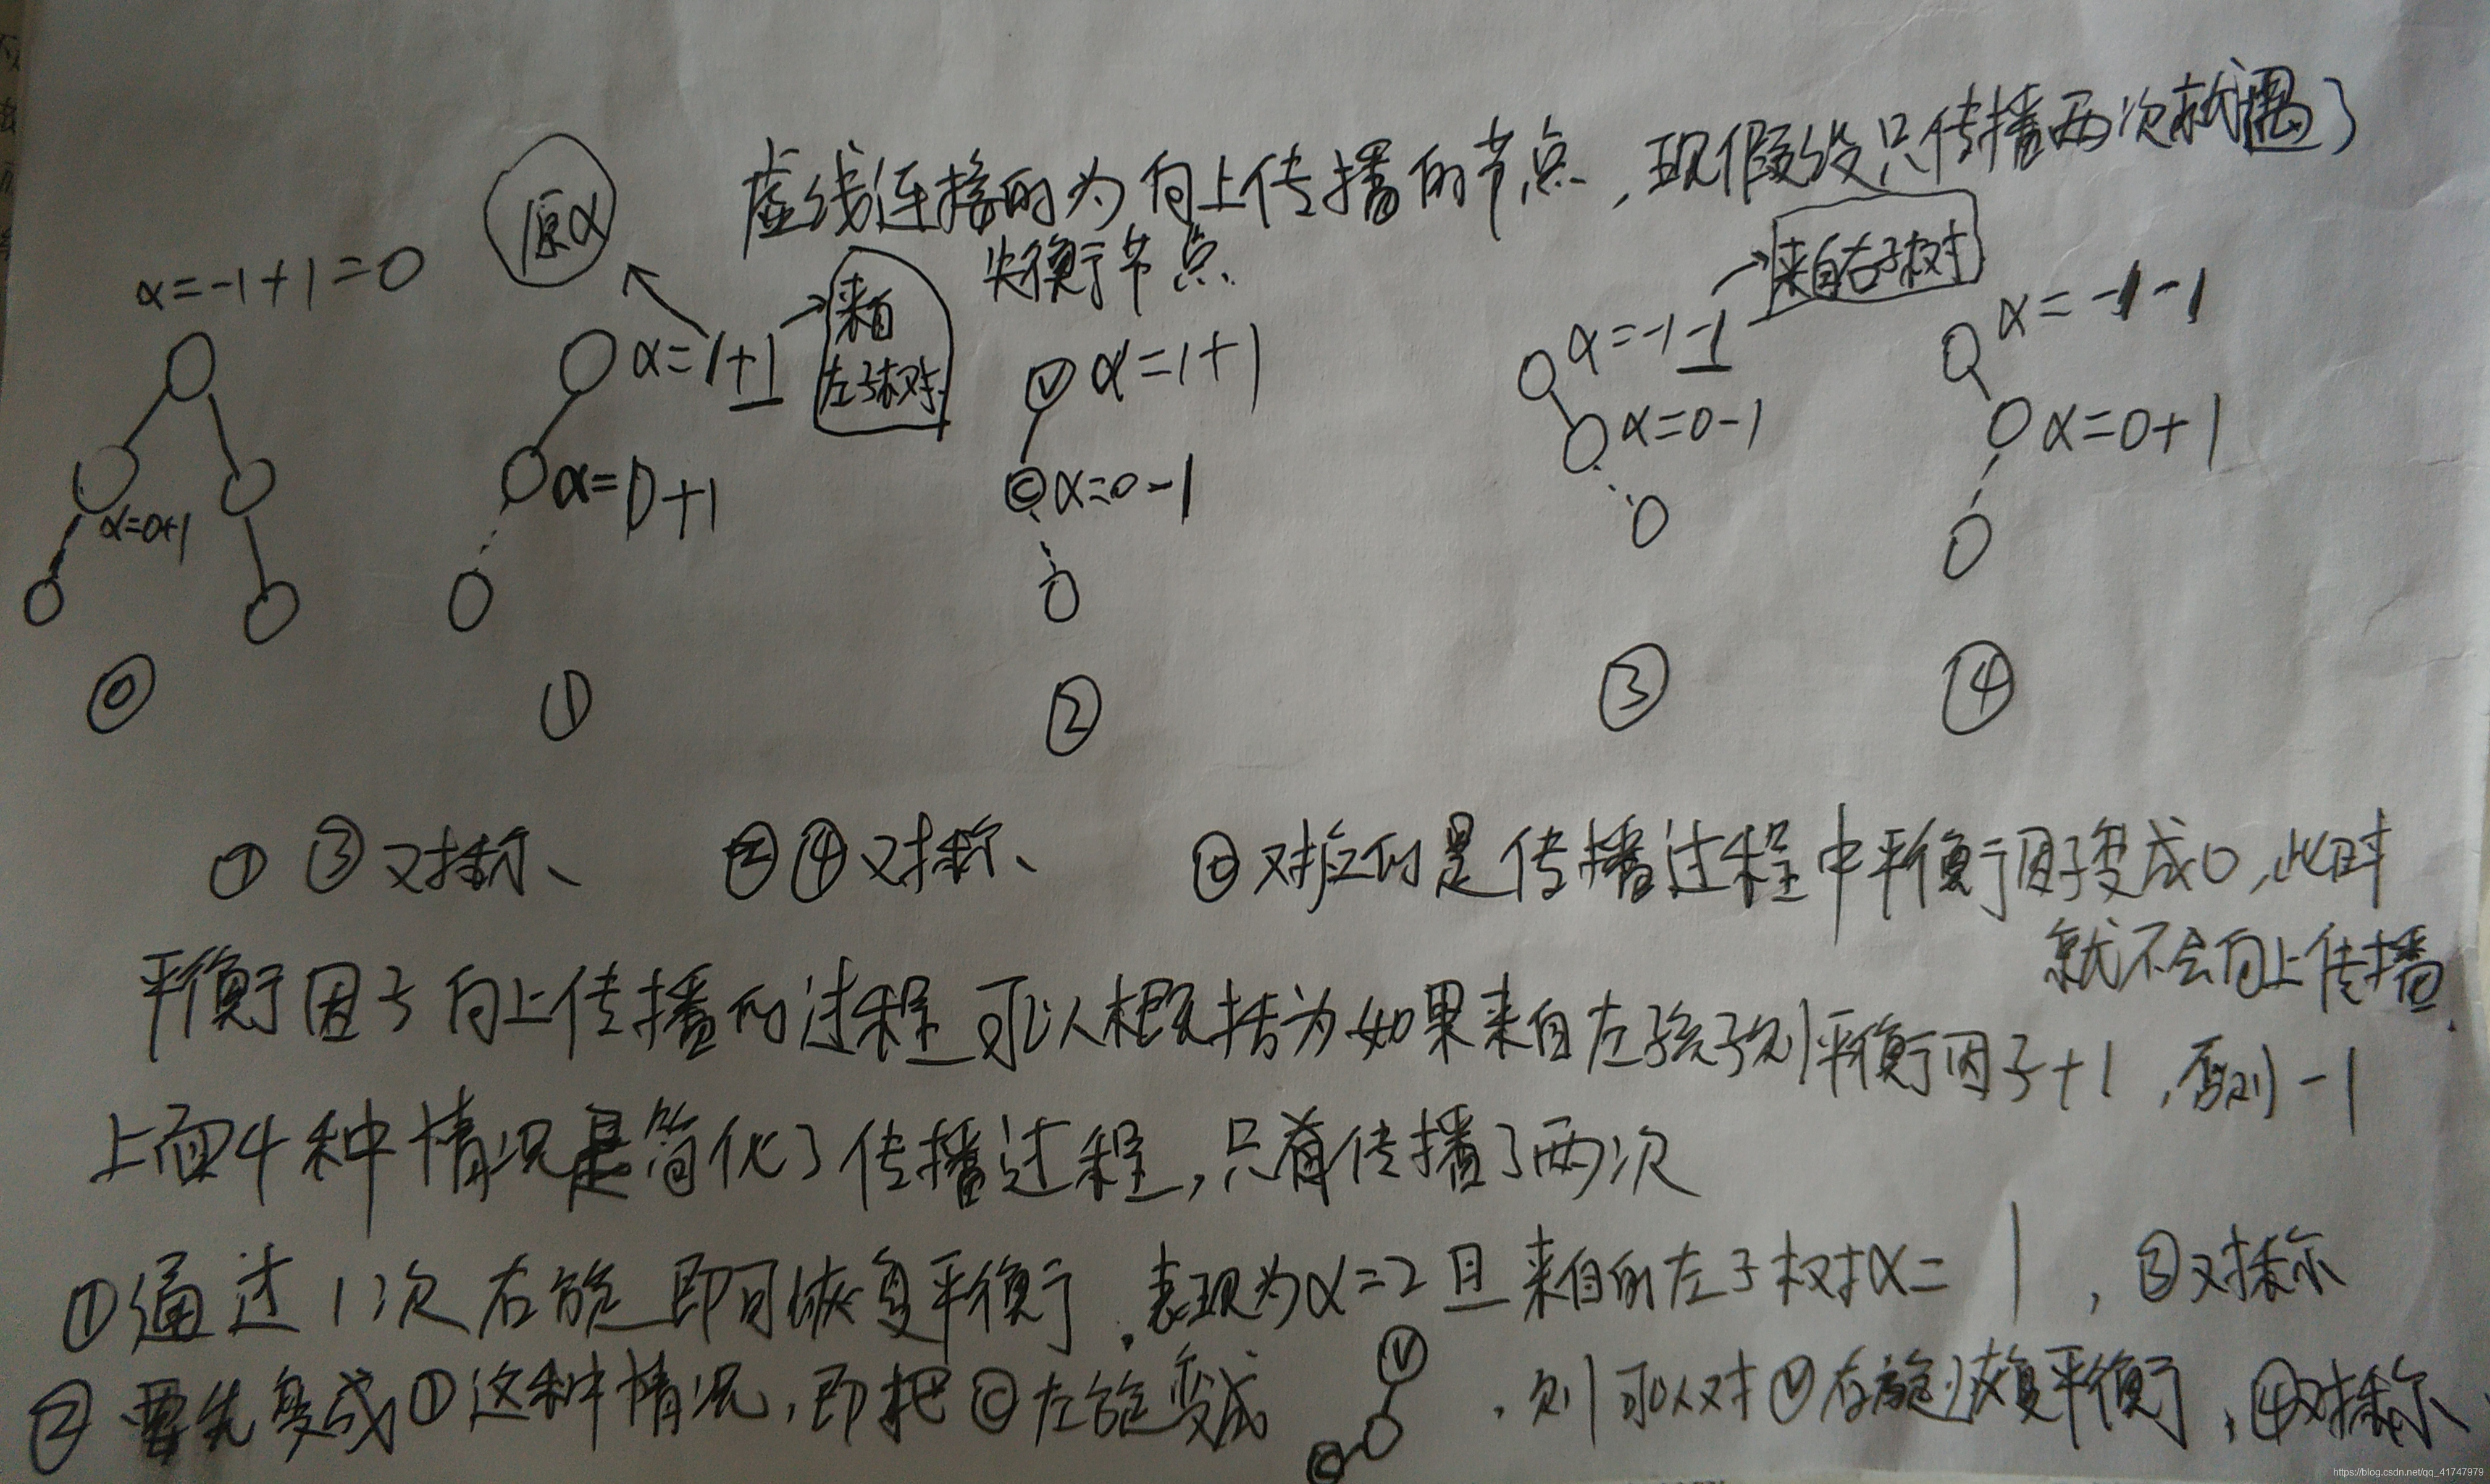 虚线连接的为向上传播的节点，现假设只传播两次就遇了
失衡节点.
原α
α=-1+1=0
α=0+1
α=1+1
来自
左子树
α=0+1
V α=1+1
C α=0-1
来自右子树
α=-1-1
α=0-1
α=-1-1
α=0+1
⓪ ① ② ③ ④
① ③对称、 ②④对称、 ⓪对应的是传播过程中平衡因子变成0,此时
就不会向上传播.
平衡因子向上传播的过程可以概括为如果来自左孩子则平衡因子+1,否则-1
上面4种情况是简化了传播过程,只有传播了两次
①通过1次右旋即可恢复平衡.表现为α=2且来自的左子树α=1,③对称
②要先变成①这种情况,即把Ⓒ左旋变成 V C .则可以对Ⓥ右旋恢复平衡,④对称、
https://blog.csdn.net/qq_41747979